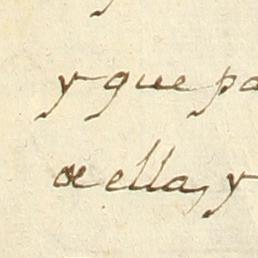 y que pa
de ella, y